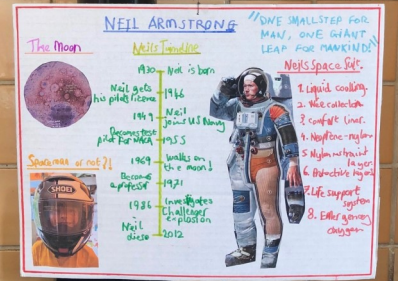 NEIL ARMSTRONG
"ONE SMALL STEP FOR
MAN, ONE GIANT
LEAP FOR MANKIND"
The Moon
Spaceman or not?!
SHOEI
Neil's Timeline
1930 Neil is born
Neil gets
his pilots licence 1946
1949 Neil
joins US Navy
Becomes test
pilot for NACA 1955
1969 walks on
the moon!
Become
a professor 1971
1986 Investigates
Challenger
explosion
Neil
dies 2012
Neil's Space Suit.
1. Liquid cooling.
2. collection
3. comfort liner.
4. Neoprene-nylon
5. Nylon restraint
layer
6. Protective layers
7. Life support
system
8. Emergency
oxygen